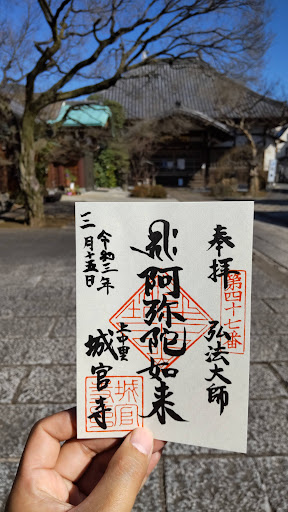 奉拝
第四十七番
弘法大師
阿弥陀如来
上中里
城官寺
令和三年
三月十五日
城官寺